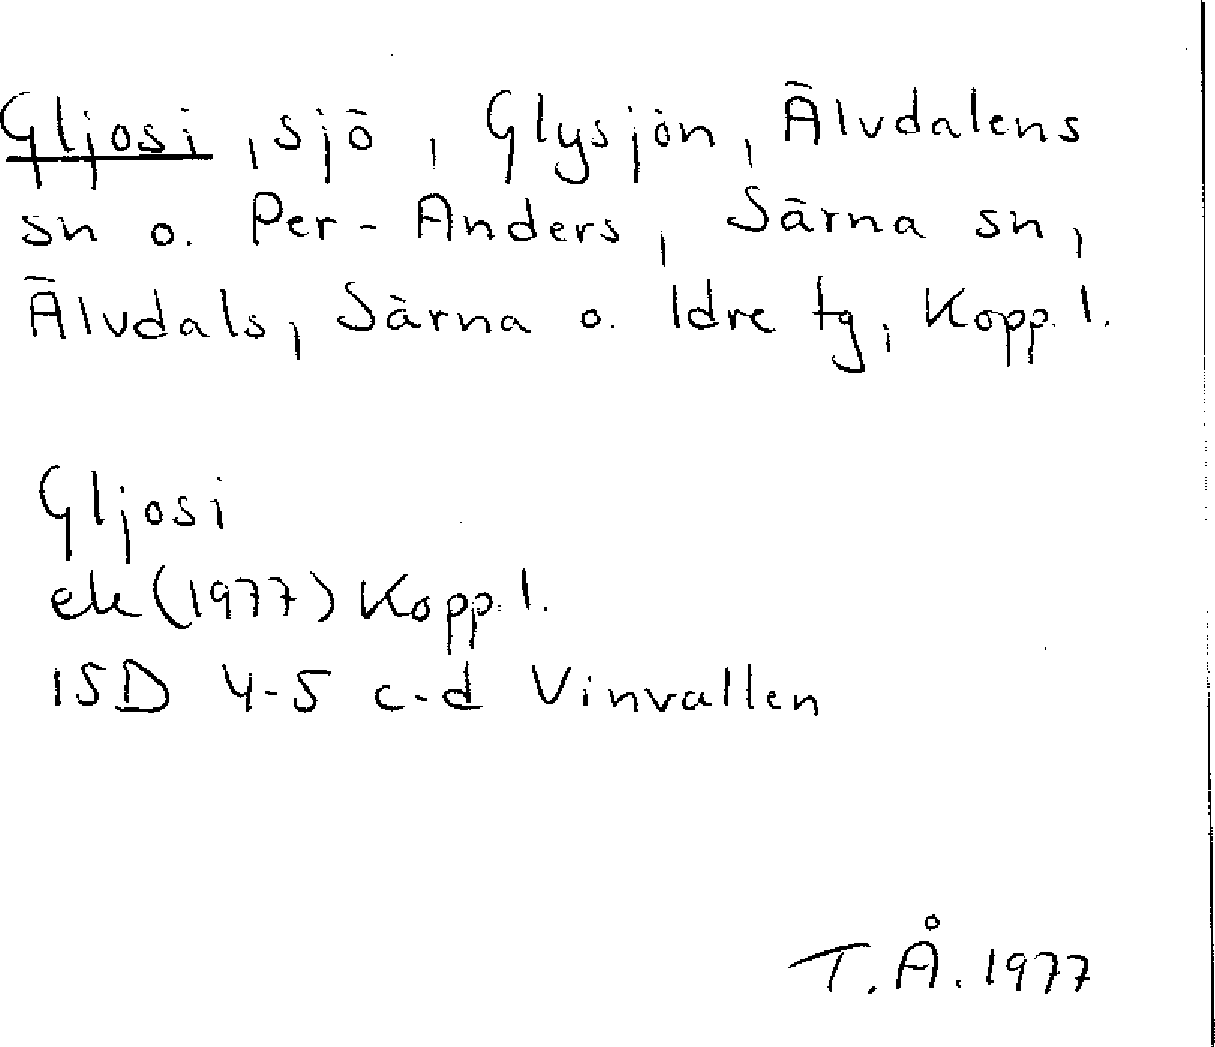 Gljosi, sjö, Glysjön, Älvdalens
sn o. Per-Anders, Särna sn,
Älvdals, Särna o. Idre tg, Kopp. l.
Gljosi
ek (1977) Kopp. l.
15D 4-5 c-d Vinvallen
T. Å. 1977